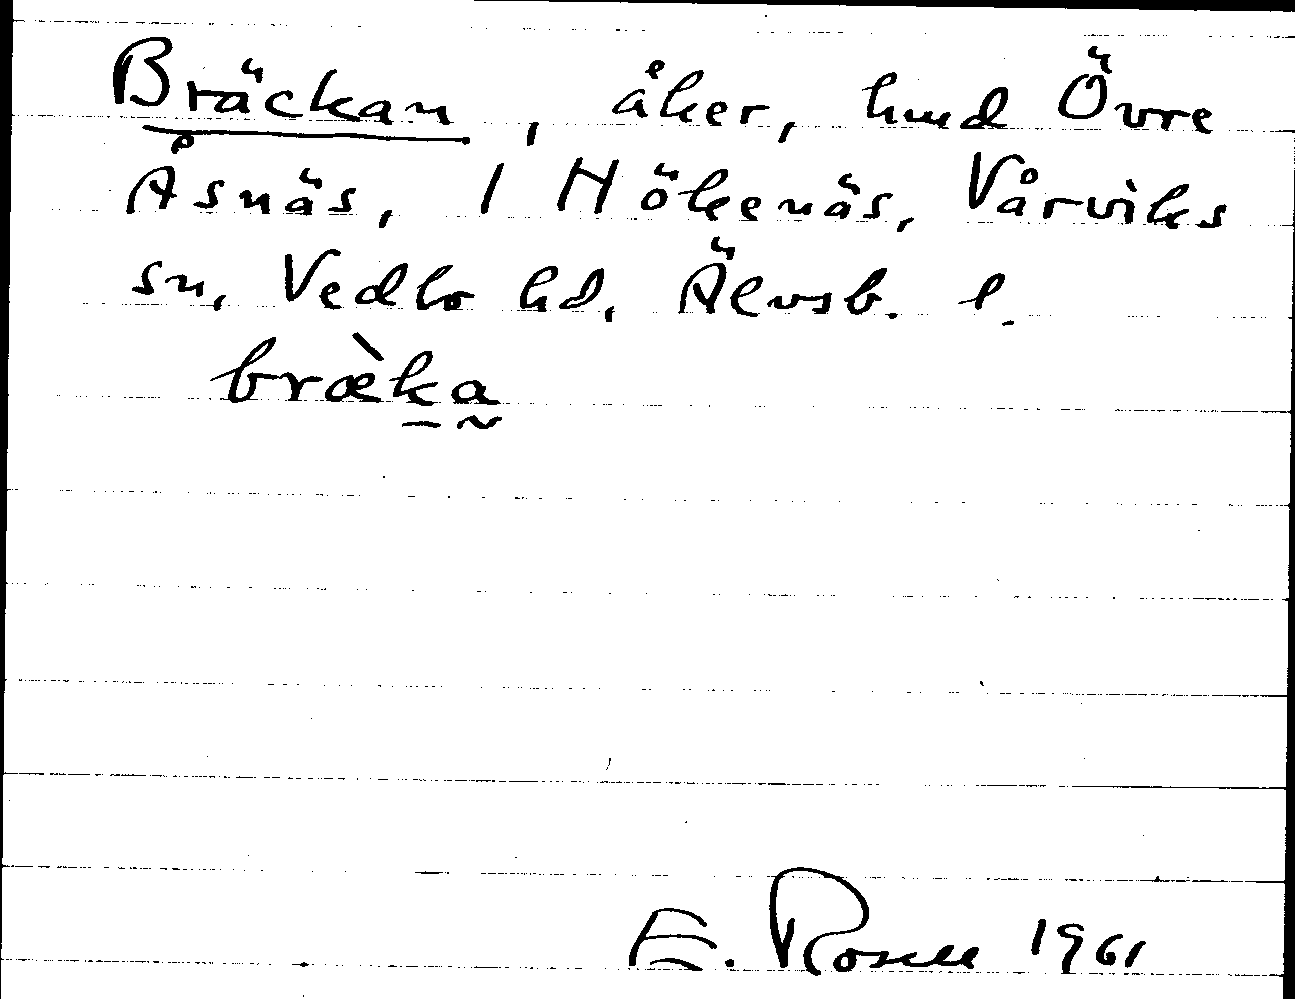 Bräckan, åker, hmd Övre
Åsnäs, 1 Hökenäs, Vårviks
sn, Vedbo hd, Älvsb. l.
bræ̀ka
E. Rosell 1961